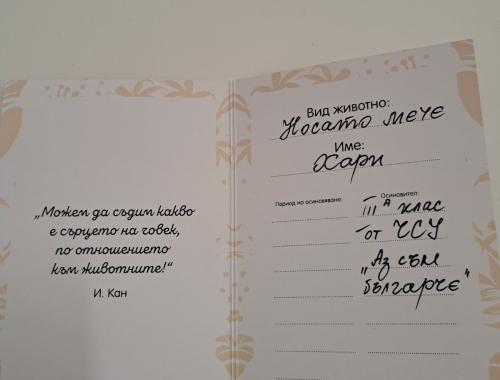 „Можем да съдим какво
е сърцето на човек,
по отношението
към животните!“
И. Кан
Вид животно:
Носато мече
Име:
Хари
Период на осиновяване:
Осиновител:
III А клас
от ЧСУ
„Аз съм
българче“